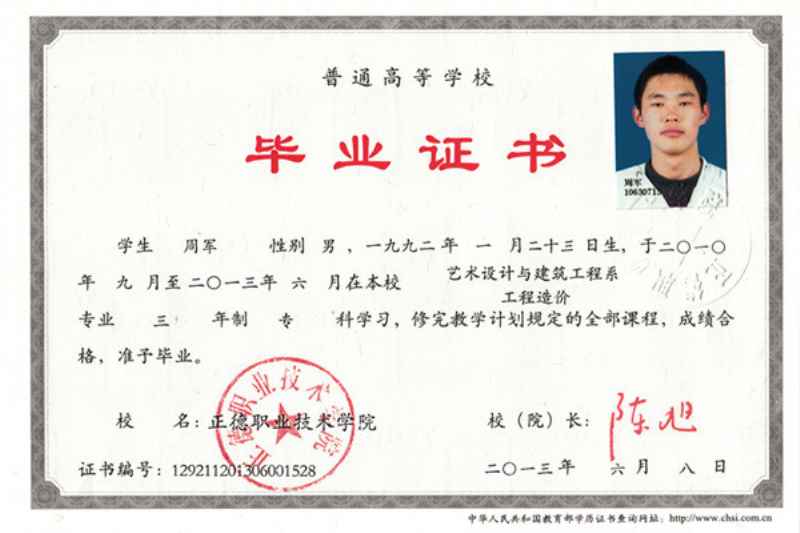 普通高等学校
毕业证书
周军
学生 周军 性别 男 ，一九九二年 一 月二十三日生，于二〇一〇
年 九 月至二〇一三年 六 月在本校 艺术设计与建筑工程系
工程造价
专业 三 年制 专 科学习，修完教学计划规定的全部课程，成绩合
格，准予毕业。
正德职业技术学院
校 名：正德职业技术学院 校（院）长：陈旭
证书编号：129211201306001528 二〇一三年 六月 八日
中华人民共和国教育部学历证书查询网址：http://www.chsi.com.cn